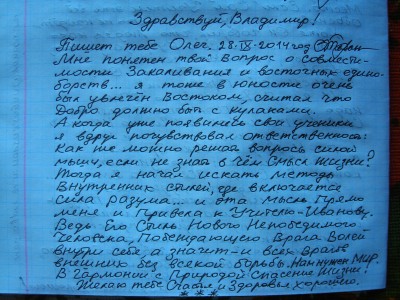 Здравствуй, Владимир!
Пишет тебе Олег. 28.IX-2014 год
Мне понятен твой вопрос о совмести-
мости Закаливания и восточных едино-
борств... я тоже в юности очень
был увлечён Востоком, считал что
Добро должно быть с кулаками.
А когда уже появились свои ученики
я вдруг почувствовал ответственность:
Как же можно решать вопросы силой
мышц, если не знать в чём Смысл Жизни?
Тогда я начал искать методы
Внутренних стилей, где включается
Сила Разума... и эта мысль Прямо
меня и Привела к Учителю-Иванову.
Ведь Его Стиль Нового Непобедимого
Человека, Побеждающего Врага Волей
внутри себя, а значит-и всех Врагов
внешних без всякой борьбы. Нам нужен Мир.
В Гармонии с Природой-Спасение Жизни!
Желаю тебе Счастья и Здоровья хорошего.
***